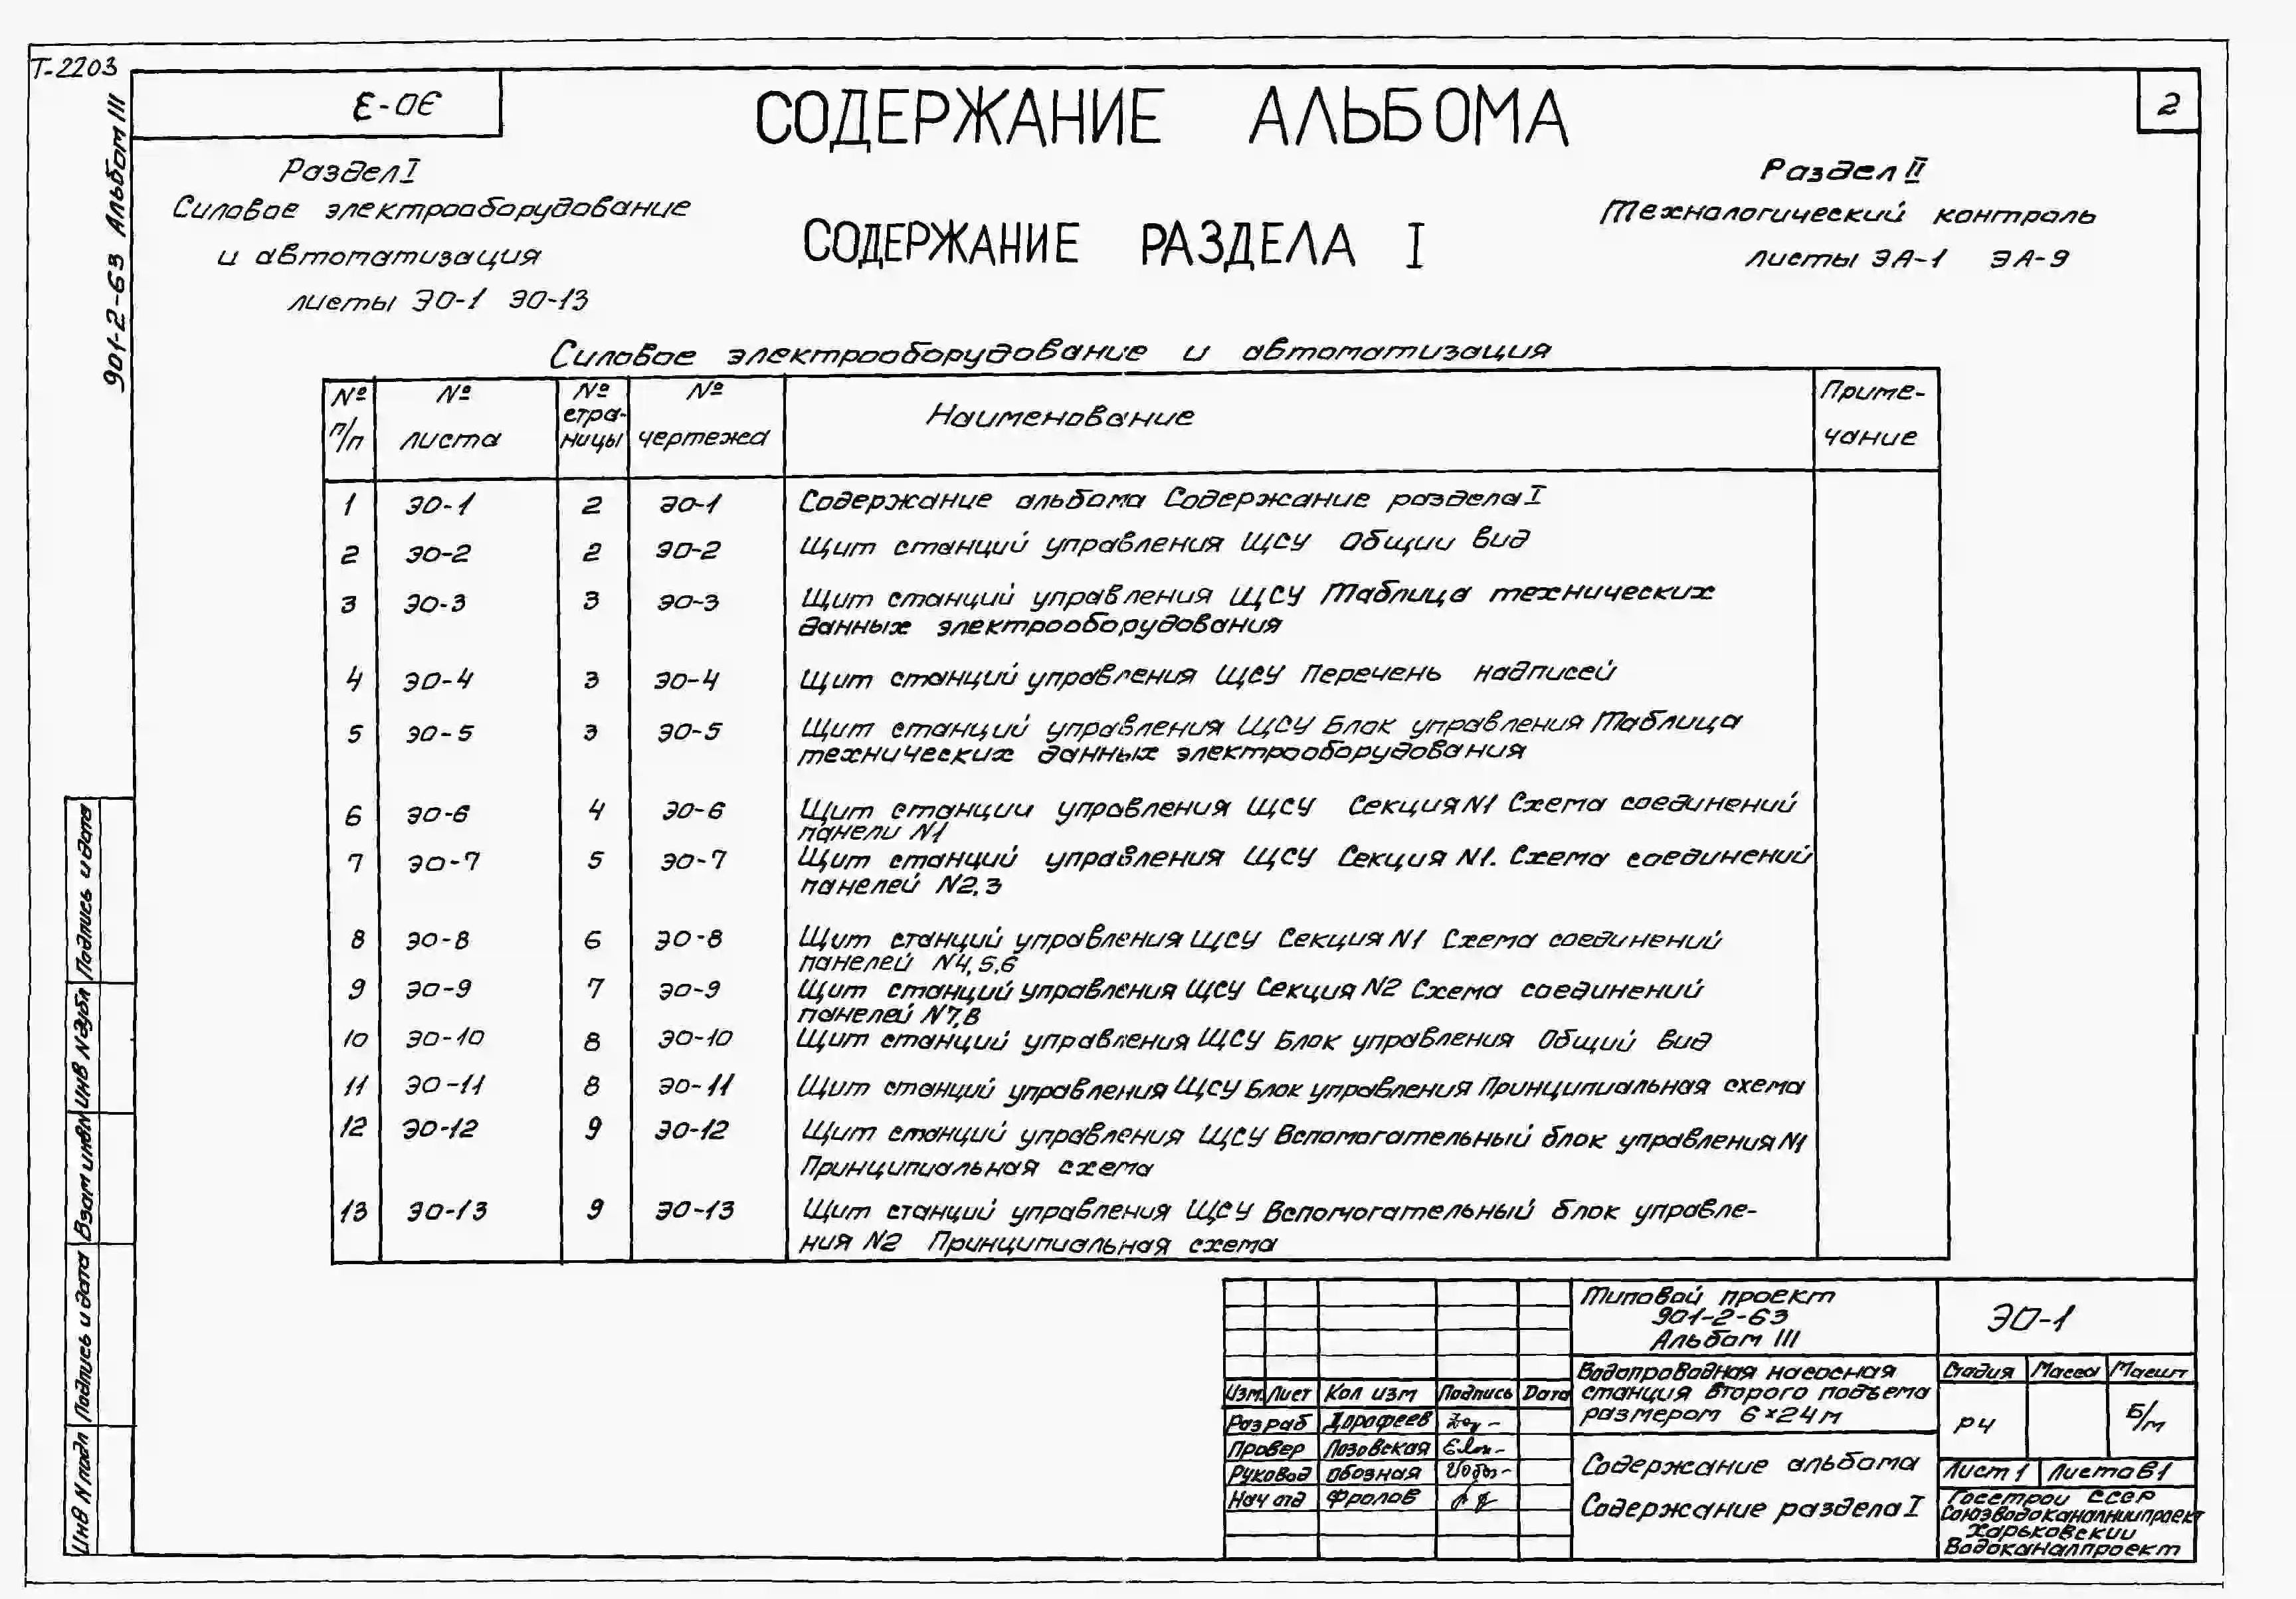 Т-2203
901-2-63 Альбом III
Ɛ-0Є
2
СОДЕРЖАНИЕ АЛЬБОМА
Раздел I
Силовое электрооборудование
и автоматизация
листы ЭО-1 ЭО-13
Раздел II
Технологический контроль
листы ЭА-1 ЭА-9
СОДЕРЖАНИЕ РАЗДЕЛА I
Силовое электрооборудование и автоматизация
№ п/п № листа № стра-ницы № чертежа Наименование Приме-чание
1 ЭО-1 2 ЭО-1 Содержание альбома Содержание раздела I
2 ЭО-2 2 ЭО-2 Щит станций управления ЩСУ Общии вид
3 ЭО-3 3 ЭО-3 Щит станций управления ЩСУ Таблица технических
данных электрооборудования
4 ЭО-4 3 ЭО-4 Щит станций управления ЩСУ Перечень надписей
5 ЭО-5 3 ЭО-5 Щит станций управления ЩСУ Блок управления Таблица
технических данных электрооборудования
6 ЭО-6 4 ЭО-6 Щит станции управления ЩСУ Секция N1 Схема соединений
панели N1
7 ЭО-7 5 ЭО-7 Щит станций управления ЩСУ Секция N1. Схема соединений
панелей N2,3
8 ЭО-8 6 ЭО-8 Щит станций управления ЩСУ Секция N1 Схема соединений
панелей N4,5,6
9 ЭО-9 7 ЭО-9 Щит станций управления ЩСУ Секция N2 Схема соединений
панелей N7,8
10 ЭО-10 8 ЭО-10 Щит станций управления ЩСУ Блок управления Общий вид
11 ЭО-11 8 ЭО-11 Щит станций управления ЩСУ Блок управления Принципиальная схема
12 ЭО-12 9 ЭО-12 Щит станций управления ЩСУ Вспомогательный блок управления N1
Принципиальная схема
13 ЭО-13 9 ЭО-13 Щит станций управления ЩСУ Вспомогательный блок управле-
ния N2 Принципиальная схема
Подпись и дата
Инв N дубл
Взам инв N
Подпись и дата
Инв N подл
Изм. Лист Кол изм Подпись Дата
Разраб Дорофеев
Провер Лозовская
Руковод Обозная
Нач отд Фролов
Типовой проект
901-2-63
Альбом III
ЭО-1
Водопроводная насосная
станция второго подъема
размером 6×24м
Стадия Масса Масшт
РЧ Б/м
Содержание альбома
Содержание раздела I
Лист 1 Листов 1
Госстрои СССР
Союзводоканалниипроект
Харьковскии
Водоканалпроект